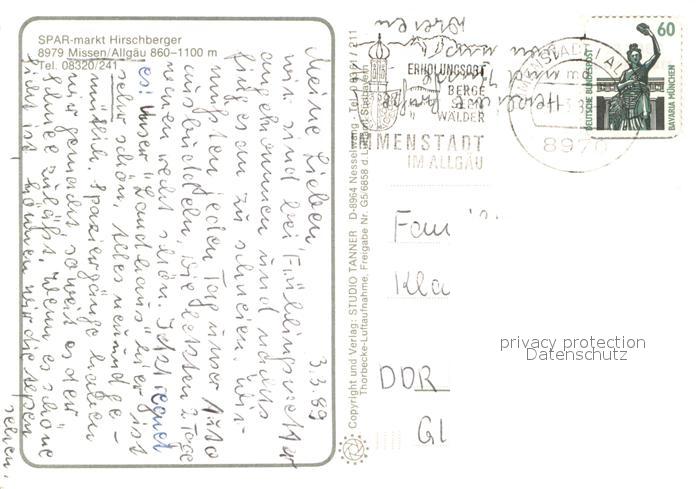 SPAR-markt Hirschberger
8979 Missen/Allgäu 860–1100 m
Tel. 08320/241
3.3.89
Meine Lieben,
wir sind bei Frühlingswetter
angekommen und nachts
fing es an zu schneien. Wir
mußten jeden Tag unser Auto
ausbuddeln, die letzten 2 Tage
waren recht schön. Jetzt regnet
es. Unser "Landhaus" hier ist
sehr schön, alles neu und ge-
mütlich. Spaziergänge haben
wir gemacht soweit es der
Schnee zuläßt. Wenn es schöne
Sicht ist, können wir die Alpen
sehen.
Copyright und Verlag: STUDIO TANNER D-8964 Nesselwang · Tel. 08361/211
Thorbecke-Luftaufnahme, Freigabe Nr. G5/6858 d. Luftamt Südbayern
Herzl. Grüße
ERHOLUNGSORT
BERGE
SEEN
WÄLDER
IMMENSTADT
IM ALLGÄU
IMMENSTADT I. ALLGÄU
8970
60
DEUTSCHE BUNDESPOST
BAVARIA MÜNCHEN
Fam
Kla
DDR
Gl
privacy protection
Datenschutz